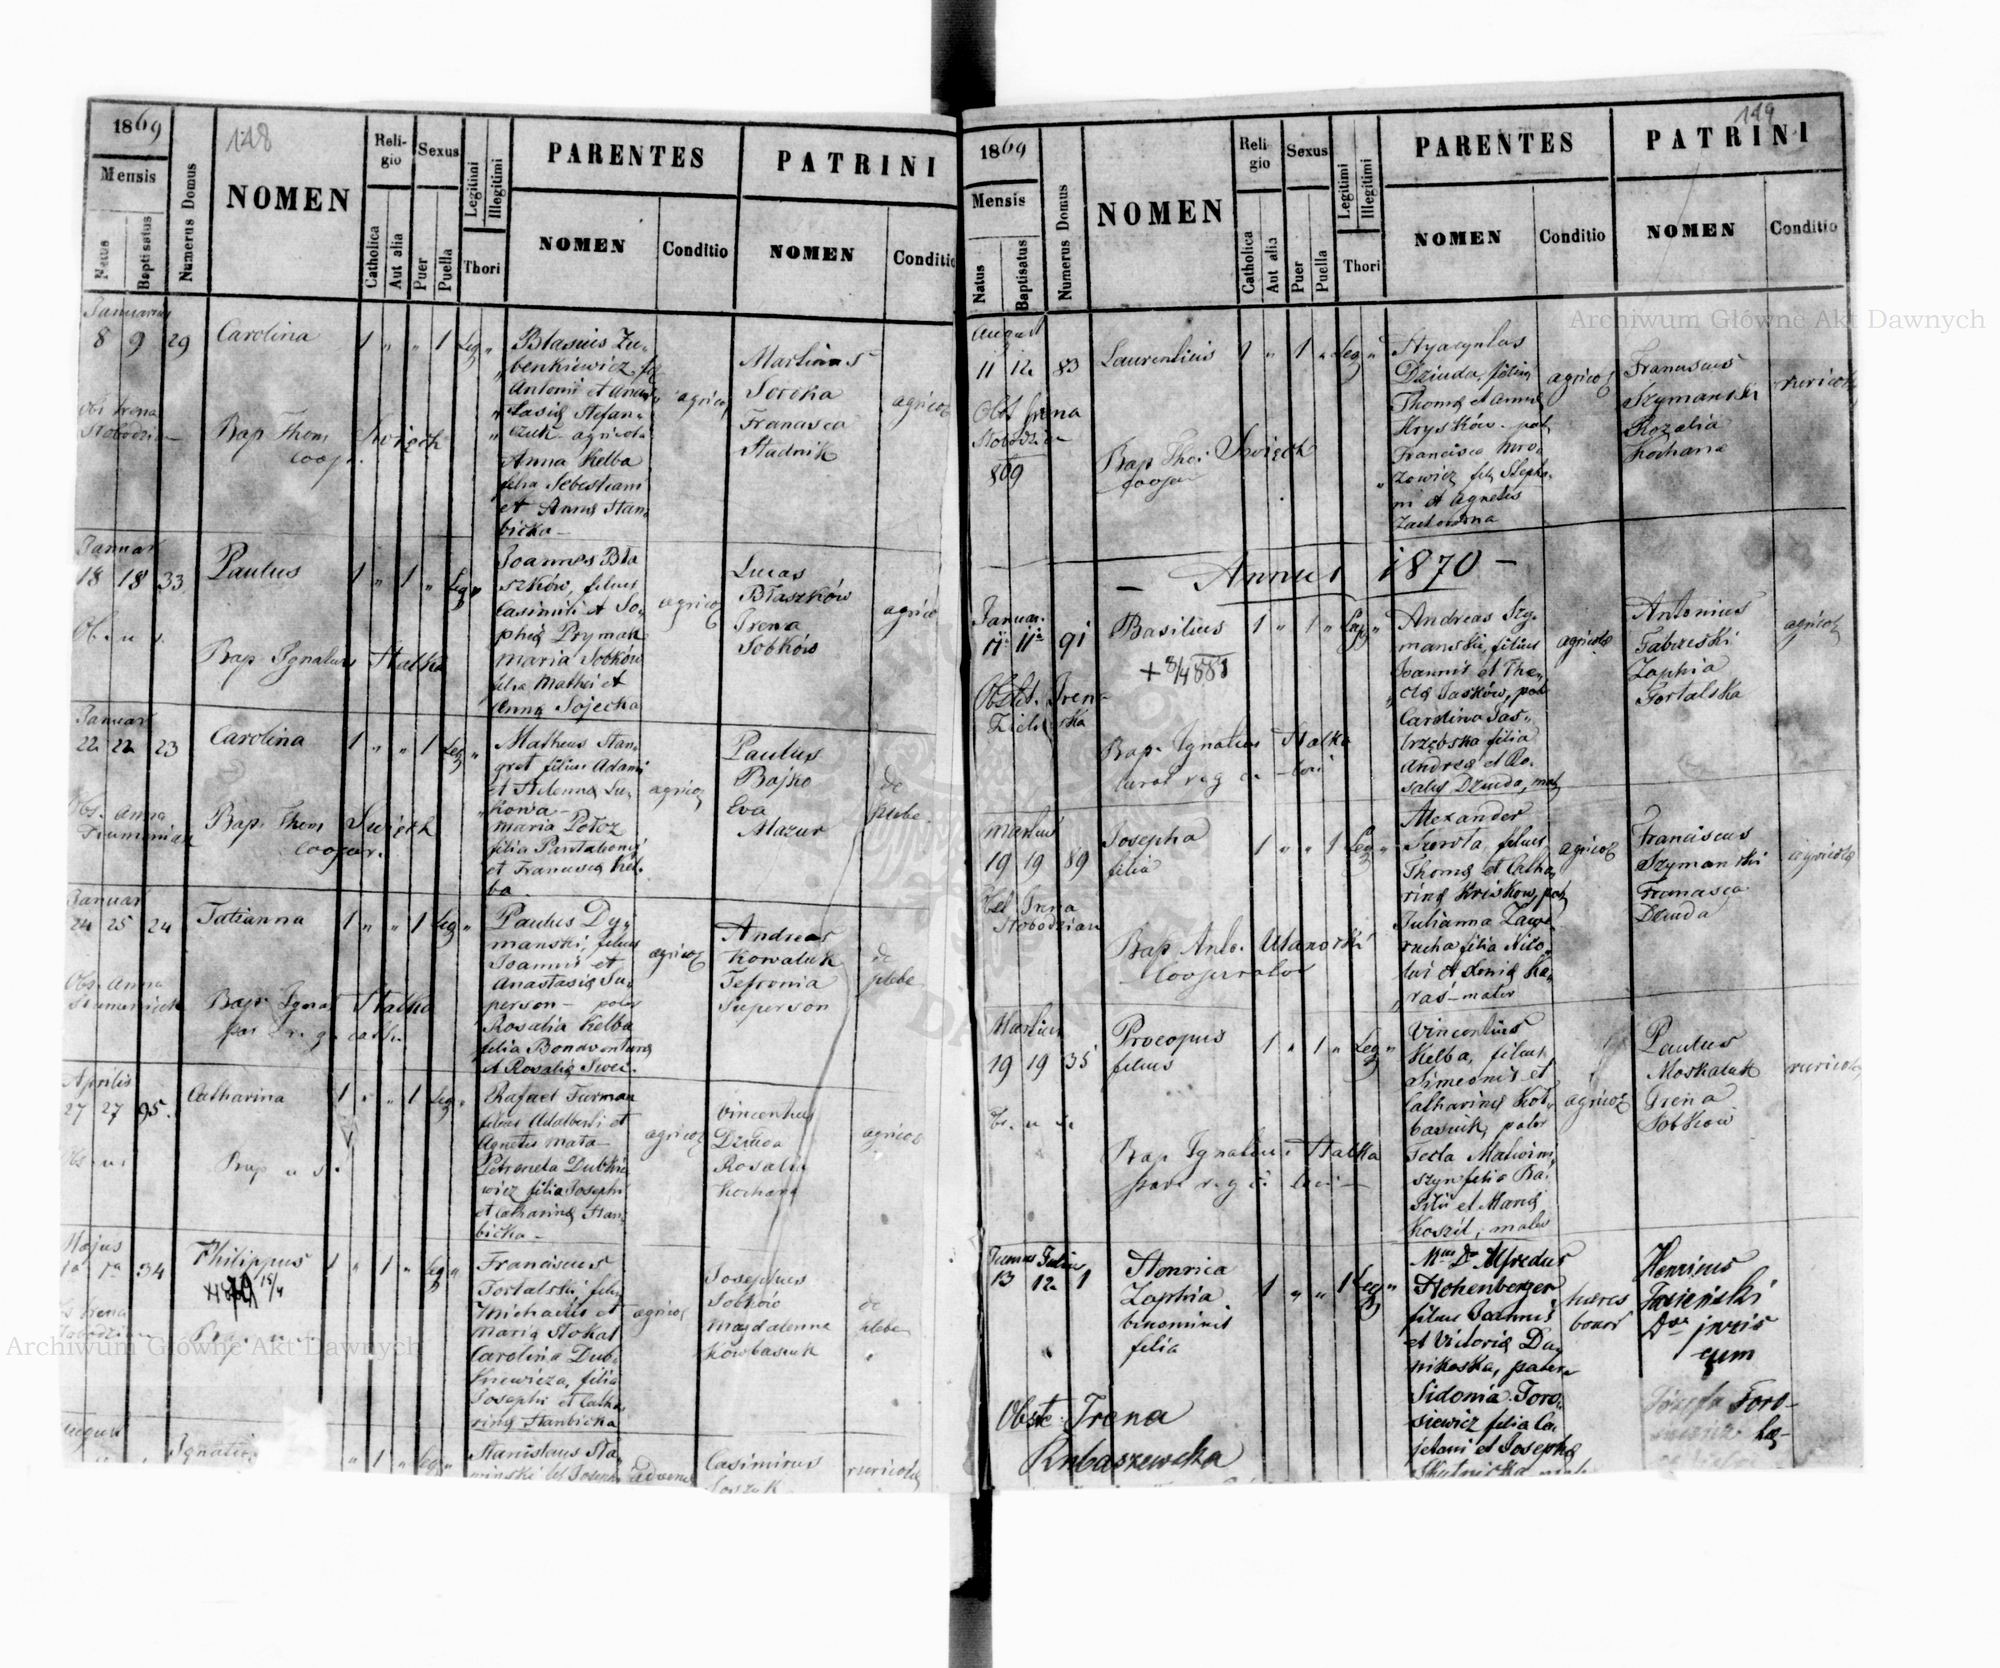 1869
118
Mensis
Natus
Baptisatus
Numerus Domus
NOMEN
Religio
Catholica
Aut alia
Sexus
Puer
Puella
Legitimi
Illegitimi
Thori
PARENTES
NOMEN
Conditio
PATRINI
NOMEN
Conditio
Januarius
8 9 29 Carolina 1 " " 1 Leg "
Blasius Zu-
benkiewicz
Antonii et
agricola
Anna Kelba
filia Sebestiani
et Anna Stan-
bicka
agricol
Martinus
Soroka
Francisca
Stadnik
agricol
Obs Irena
Słobodzian
Bap Thom Swięch
coop.
Januar
18 18 33 Paulus 1 " 1 " Leg "
Joannes Bła
szków, filius
Casimiri et So-
phia Prymak
Maria Sobków
filia Mathei et
Anna Sojecka
agricol
Lucas
Błaszków
Irena
Sobków
agrico
Ob. u s.
Bap Ignatius Stalka
Januar
22 22 23 Carolina 1 " " 1 Leg "
Matheus Stan-
gret filius Adami
et Helena Lu-
kowa
Maria Potoz
filia Pantaleonis
et Francisca Kel-
ba
agricol
Paulus
Bojko
Eva
Mazur
de
plebe
Obs. Anna
Bap. Thom Swięch
cooper.
Januar
24 25 24 Tatianna 1 " " 1 Leg "
Paulus Dy-
manski, filius
Joannis et
Anastasia Su-
person - pater
Rosalia Kelba
filia Bonaventura
et Rosalia
agricol
Andreas
Kowaluk
Tefronia
Superson
de
plebe
Obs. Anna
Bap Ignat Stalka
par r. g. cath.
Aprilis
27 27 95. Catharina 1 " " 1 Leg "
Rafael Furman
filius Adalberti et
Agnetis Mata
Petronela Dubkie
wicz filia Josephi
et Catharina Stan-
bicka
agricol
Vincentius
Dziuda
Rosalia
Kochana
agricol
Obs. u s
Bap u s.
Majus
1a 1a 34 Philippus 1 " 1 " Leg "
15/4
Franciscus
Fortalski, filius
Michaelis et
Maria Stokal
Carolina Dub-
kiewicza, filia
Josephi et Catha-
rina Stanbicka
agricol
Josephus
Sobków
Magdalenna
Kowbasiuk
de
plebe
Irena
Bap. u s
August
Ignatius " 1 " Leg "
Stanislaus Sta-
Casimirus
ruricola
1869
119
Mensis
Natus
Baptisatus
Numerus Domus
NOMEN
Religio
Catholica
Aut alia
Sexus
Puer
Puella
Legitimi
Illegitimi
Thori
PARENTES
NOMEN
Conditio
PATRINI
NOMEN
Conditio
August
11 12 83 Laurentius 1 " 1 " Leg "
Hyacyntus
Dziuda, filius
Thoma et Anna
Krysków. pat,
Francisca Mro-
zowicz filia Stepha-
ni et Agnetis
agricol
Franciscus
Szymanski
Rozalia
Kochana
ruricola
Obst Irena
Słobodzian
869
Bap Tho: Swięch
Cooper
— Annus 1870 —
Januar.
11 11 91 Basilius 1 " 1 " Leg "
+ 3/4 881
Andreas Szy-
manski, filius
Joannis et The-
cla Jasków, pat
Carolina Jas-
trzębska filia
Andrea et Ro-
salia Dziuda, mat
agricola
Antonius
Zophia
Fortalska
agricol
Obst. Irena
Bap. Ignatius Stalka
Martius
19 19 89 Josepha 1 " " 1 Leg "
filia
Alexander
Szewta, filius
Thoma et Catha-
rina Kriskow, pat,
Julianna Zawe-
rucha filia Nico-
lai et Xenia Ka-
raś - mater
agricol
Franciscus
Szymanski
Francisca
Dziuda
agricola
Obst Irena
Słobodzian
Bap. Anto. Ulanowski
Cooperator
Martius
19 19 35 Procopus 1 " 1 " Leg "
filius
Vincentius
Kelba, filius
Simeonis et
Catharina Kot-
basiuk, pater
Tecla Malwini-
szyn filia Ba-
silii et Maria
Koszil, mater
agricol
Paulus
Moskaluk
Irena
Sobków
ruricola
Bap Ignatius Stalka
Junius Julius
13 12 1 Henrica 1 " " 1 Leg "
Zophia
binominis
filia
Alfredus
Hohenberger
filius Joannis
et Victoria Da-
nikoska, pater
Sidonia Toro-
siewicz filia Ca-
jetani et Josepha
Skutnicka
hæres
bonor
Henricus
Jasienski
juris
cum
Józefa Toro-
Obste: Irena
Rubaszewska
Archiwum Główne Akt Dawnych
Archiwum Główne Akt Dawnych